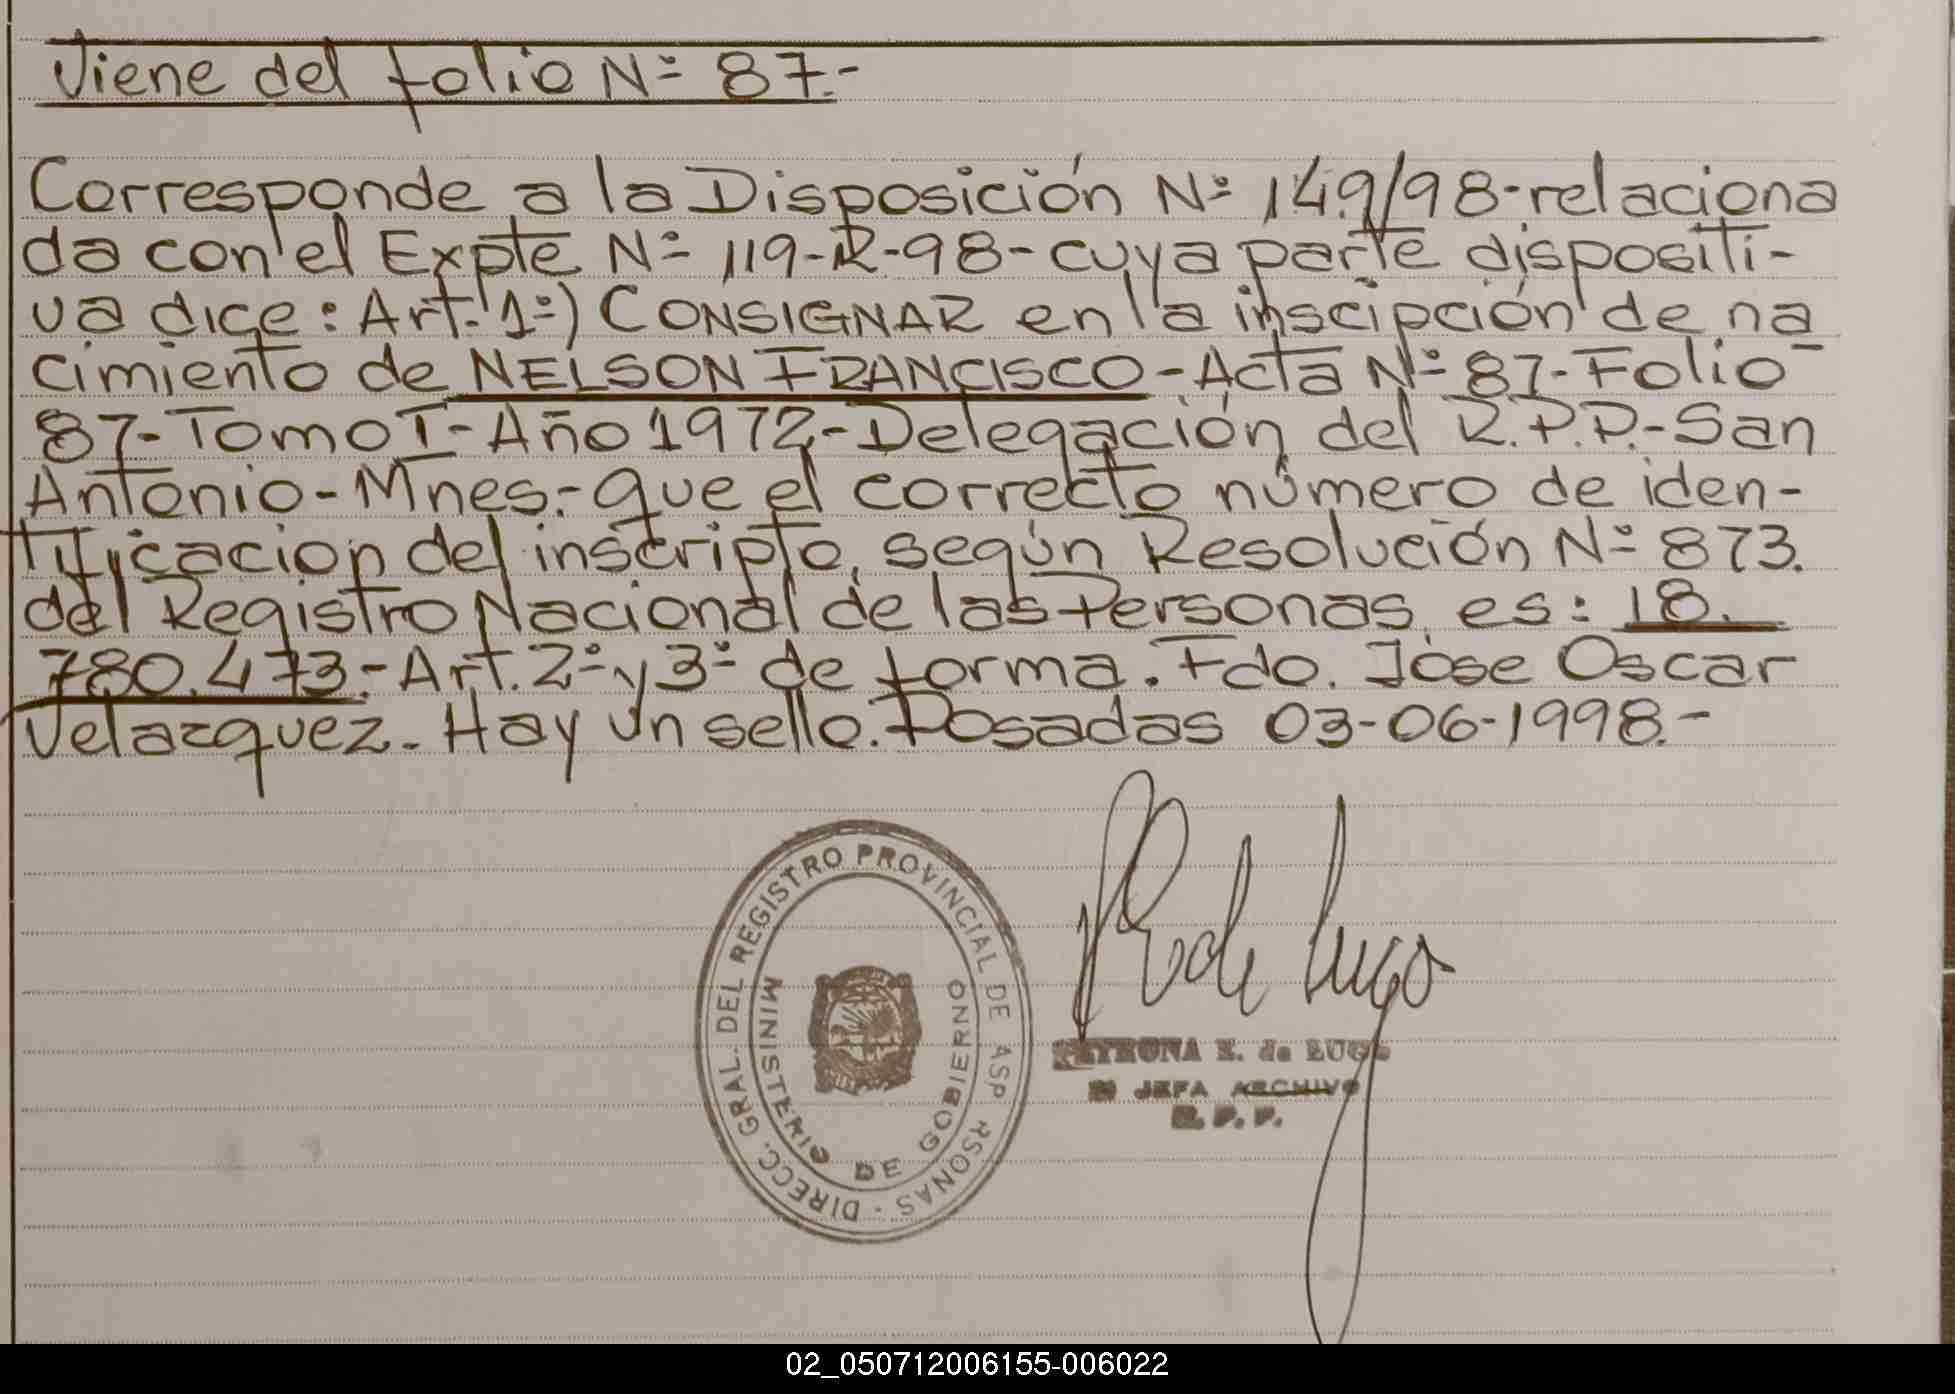 Viene del folio Nº 87.-
Corresponde a la Disposición Nº 149/98-relaciona
da con el Expte Nº 119-R-98-cuya parte dispositi-
va dice: Art. 1º) CONSIGNAR en la inscipción de na
cimiento de NELSON FRANCISCO-Acta Nº 87-Folio-
87-Tomo I-Año 1972-Delegación del R.P.P.-San
Antonio-Mnes.-que el correcto número de iden-
tificacion del inscripto, según Resolución Nº 873.
del Registro Nacional de las Personas, es: 18.
780.473.-Art. 2º y 3º de forma. Fdo. Jose Oscar
Velazquez. Hay un sello. Posadas 03-06-1998.-
DIRECC. GRAL. DEL REGISTRO PROVINCIAL DE ASP RSONAS -
MINISTERIO DE GOBIERNO
R de Lugo
PETRONA E. de LUGO
JEFA ARCHIVO
R. P. P.
02_050712006155-006022